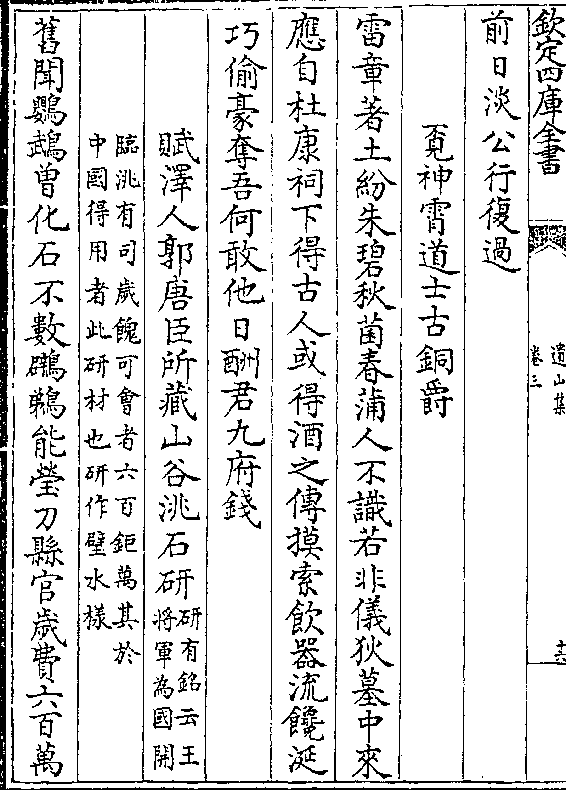 欽定四庫全書
遺山集
卷三
十六
前日淡公行復過
覓神霄道士古銅爵
雷章著土紛朱碧秋菌春蒲人不識若非儀狄墓中來
應自杜康祠下得古人或得酒之傳摸索飲器流饞涎
巧偷豪奪吾何敢他日酬君九府錢
賦澤人郭唐臣所藏山谷洮石研研有銘云王
將軍為國開
臨洮有司歲餽可會者六百鉅萬其於
中國得用者此研材也研作璧水様
舊聞鸚鵡曾化石不數鸊鵜能瑩刀縣官歲費六百萬